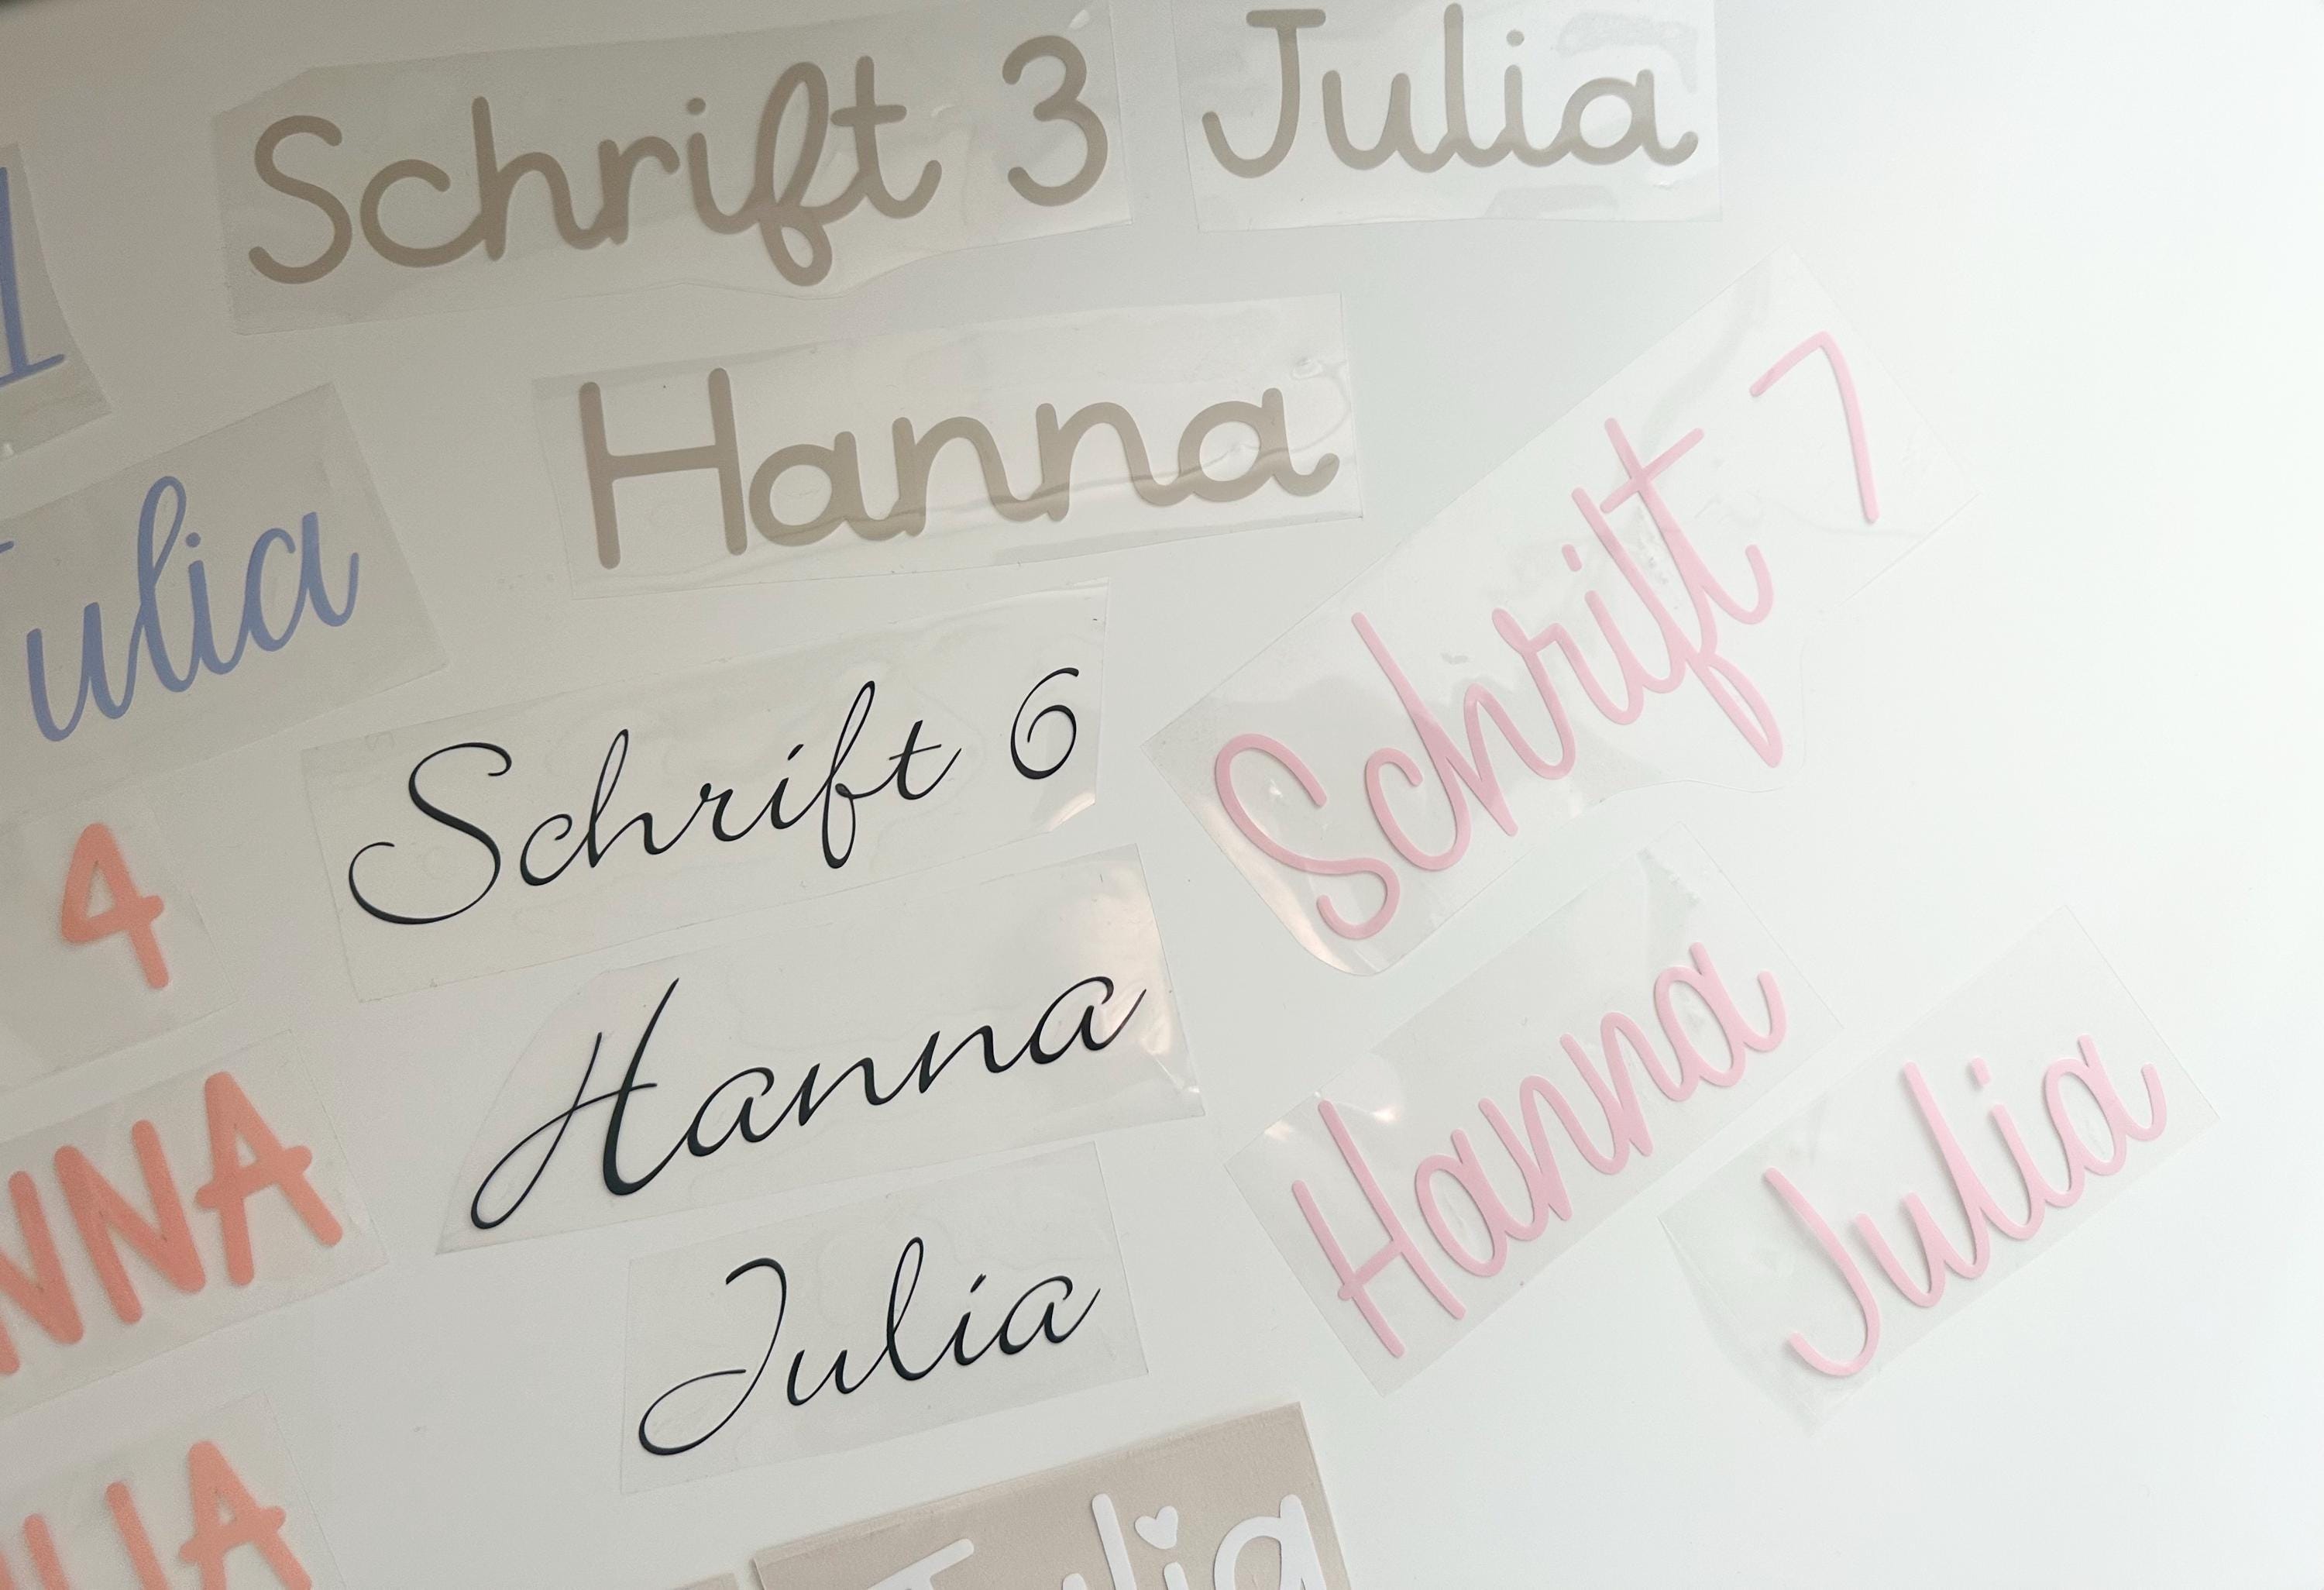 1
Schrift 3 Julia
Hanna
ulia
Schrift 6
Hanna
Julia
Schrift 7
Hanna
Julia
4
NNA
LIA
Julia